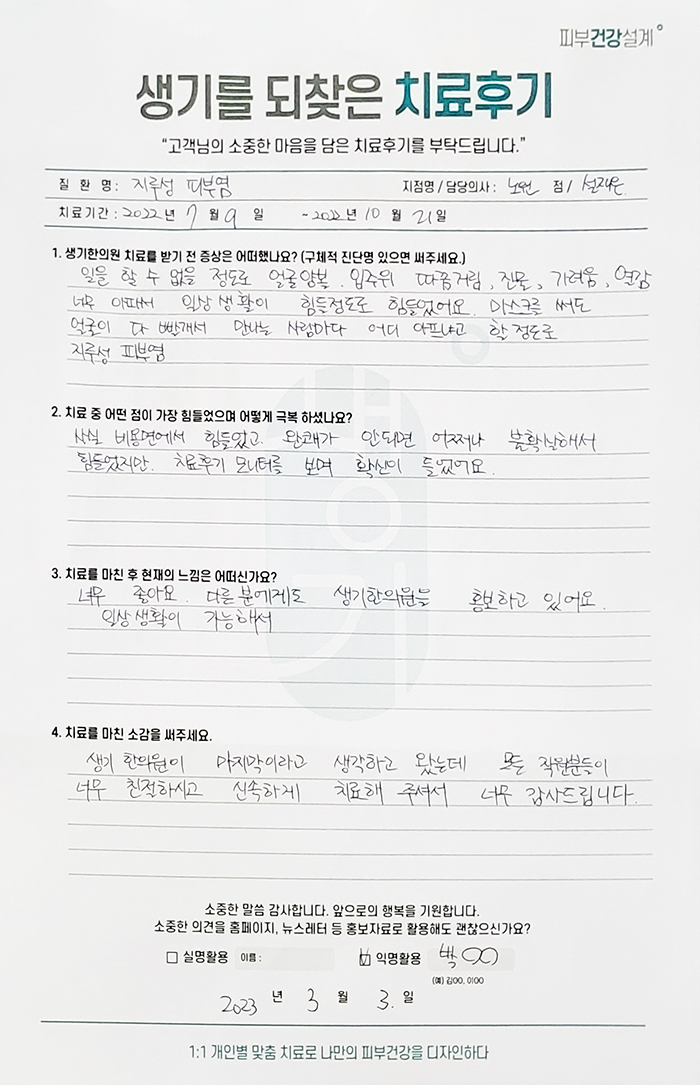 피부건강설계
생기를 되찾은 치료후기
“고객님의 소중한 마음을 담은 치료후기를 부탁드립니다.”
질 환 명 : 지루성 피부염 지점명 / 담당의사 : 노원 점 /
치료기간 : 2022년 7월 9일 ~2022년 10월 21일
1. 생기한의원 치료를 받기 전 증상은 어떠했나요? (구체적 진단명 있으면 써주세요.)
일을 할 수 없을 정도로 얼굴양볼. 입주위 따끔거림, 진물, 가려움, 열감
너무 아파서 일상생활이 힘들정도로 힘들었어요. 마스크를 써도
얼굴이 다 빨개서 만나는 사람마다 어디 아프냐고 할정도로
지루성 피부염
2. 치료 중 어떤 점이 가장 힘들었으며 어떻게 극복 하셨나요?
사실 비용면에서 힘들었고. 완쾌가 안되면 어쩌나 불확실해서
힘들었지만. 치료후기 모니터를 보며 확신이 들었어요.
3. 치료를 마친 후 현재의 느낌은 어떠신가요?
너무 좋아요. 다른분에게도 생기한의원을 홍보하고 있어요.
일상생활이 가능해서
4. 치료를 마친 소감을 써주세요.
생기 한의원이 마지막이라고 생각하고 왔는데 모든 직원분들이
너무 친절하시고 신속하게 치료해 주셔서 너무 감사드립니다.
소중한 말씀 감사합니다. 앞으로의 행복을 기원합니다.
소중한 의견을 홈페이지, 뉴스레터 등 홍보자료로 활용해도 괜찮으신가요?
실명활용 이름 : 익명활용 박OO
(예) 김OO, 이OO
2023년 3월 3.일
1:1 개인별 맞춤 치료로 나만의 피부건강을 디자인하다